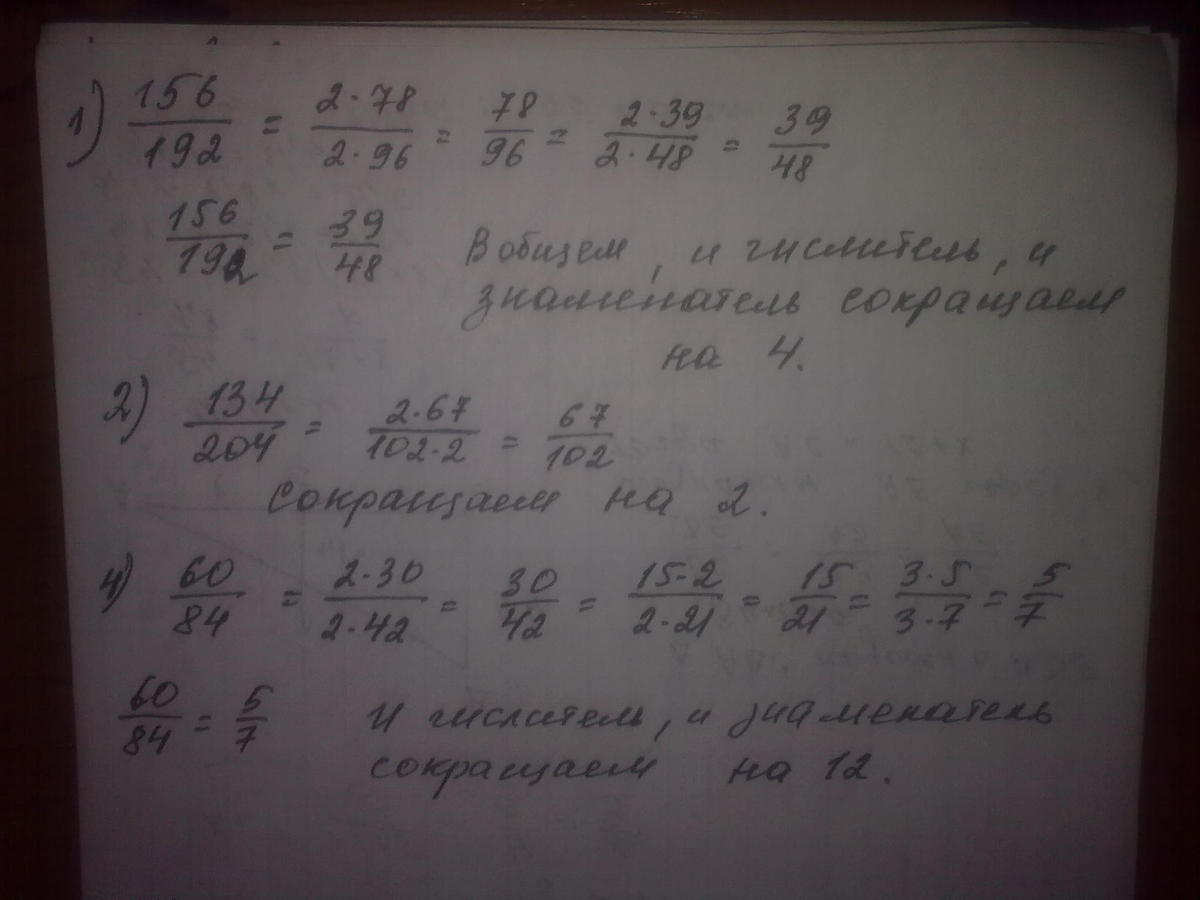 1) 156/192 = 2·78/2·96 = 78/96 = 2·39/2·48 = 39/48
156/192 = 39/48 В общем, и числитель, и
знаменатель сокращаем
на 4.
2) 134/204 = 2·67/102·2 = 67/102
Сокращаем на 2.
4) 60/84 = 2·30/2·42 = 30/42 = 15·2/2·21 = 15/21 = 3·5/3·7 = 5/7
60/84 = 5/7 И числитель, и знаменатель
сокращаем на 12.